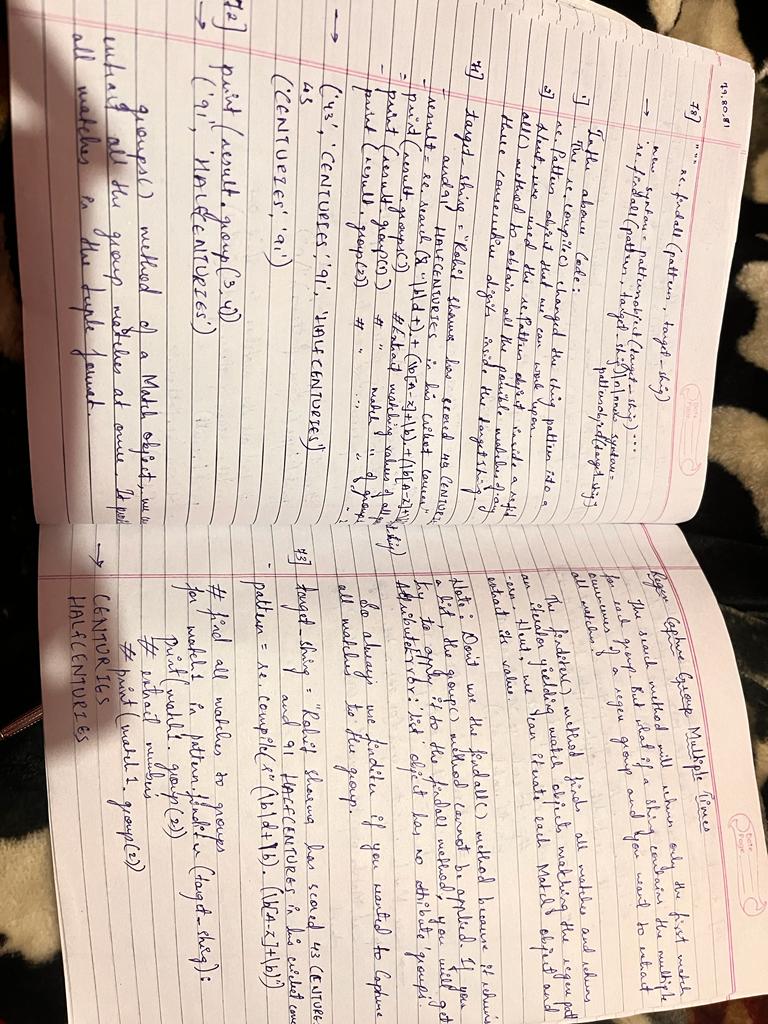 79.80.81
78] """ re.findall(pattern, target-string)
→ new syntax = patternobject(target-string)...
re.findall(pattern, target-string)
In the above code:
1) The re.compile() changed the string pattern into a
re.Pattern object that we can work upon
2) Next, we used the re.Pattern object inside a
all() method to obtain all the possible matches of any
three consecutive digits inside the target string.
71] target string = "Rohit sharma has scored 43 CENTURIE
and 91 HALFCENTURIES in his cricket career"
- result = re.search(
- print (result.groups()) # Extract matching values of all
= print (result.group(1)) # " match 1
- print (result.group(2)) # " ...
→ ('43', 'CENTURIES', '91', 'HALFCENTURIES')
43
('CENTURIES', '91')
72] print (result.group(3,4))
→ ('91', 'HALFCENTURIES')
groups() method of a Match object, we
extract all the group matches at once. It
all matches in the tuple format.
Regex Capture Group Multiple Times
The search method will return only the first match
for each group. But what if a string contains the multiple
occurrences of a regex group and you want to extract
all matches.
The finditer() method finds all matches and returns
an iterator yielding match objects matching the regex patt
-ern Next, we can iterate each Match object and
extract its value.
Note: Don't use the findall() method because it returns
a list, the group() method cannot be applied. If you
try to apply it to the findall method, you will get
AttributeError: list object has no attribute 'groups'.
So always use finditer if you wanted to capture
all matches to the group.
73] target_string = "Rohit sharma has scored 43 CENTURIE
and 91 HALFCENTURIES in his cricket
- pattern = re.compile(r"(\b\d+\b).(\b[A-Z]+\b)")
# find all matches to groups
for match1 in pattern.finditer (target-string):
print (match1.group(2))
# extract numbers
# print (match1.group(2))
→ CENTURIES
HALFCENTURIES